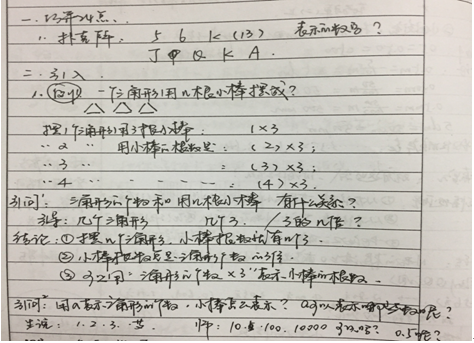 一. 巧弄难点.
1. 扑克牌: 5 6 K (13) 表示的数吗?
J Q K A.
二. 引入
1. 一个三角形用几根小棒摆成?
摆1个三角形用3根小棒: 1×3
〃2 〃 用小棒的根数是: (2)×3;
〃3 〃 : (3)×3;
〃4 〃 : (4)×3.
引问: 三角形的个数和用几根小棒 有什么关系?
引导: 几个三角形 几个3. / 3的几倍?
结论: ①摆几个三角形. 小棒根数就有几个3.
②小棒根数总是三角形个数的3倍.
③可以用“三角形的个数×3”表示小棒的根数.
引问: 用a表示三角形的个数, 小棒怎么表示? a可以表示哪些数呢?
生说: 1. 2. 3. 等 师: 10. 100. 10000 可以吗? 0.5呢?